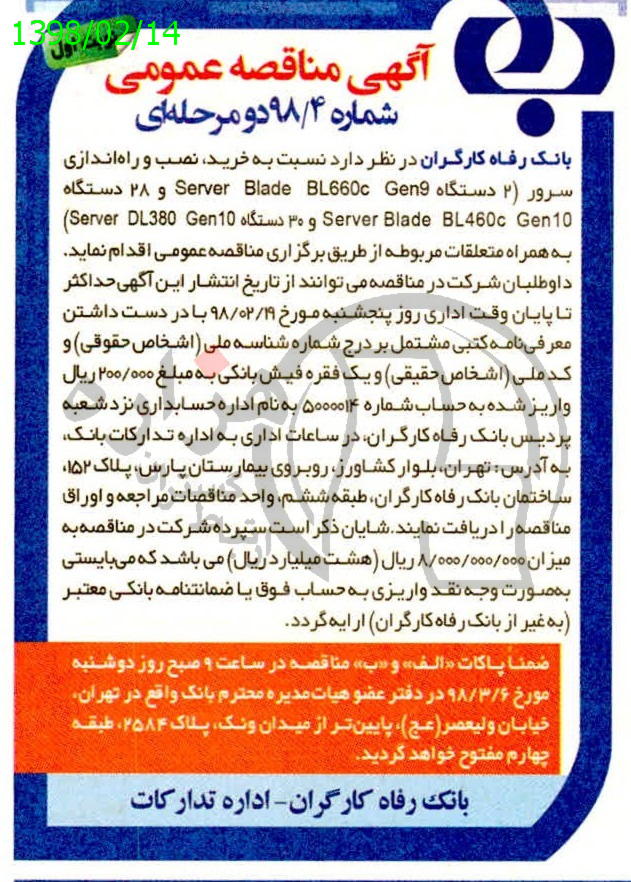 1398/02/14
نوبت اول
آگهی مناقصه عمومی
شماره ۹۸/۴ دو مرحله‌ای
بانک رفاه کارگران در نظر دارد نسبت به خرید، نصب و راه‌اندازی
سرور (۲ دستگاه Server Blade BL660c Gen9 و ۲۸ دستگاه
Server Blade BL460c Gen10 و ۳۰ دستگاه Server DL380 Gen10)
به همراه متعلقات مربوطه از طریق برگزاری مناقصه عمومی اقدام نماید.
داوطلبان شرکت در مناقصه می توانند از تاریخ انتشار این آگهی حداکثر
تا پایان وقت اداری روز پنجشنبه مورخ ۹۸/۰۲/۱۹ با در دست داشتن
معرفی نامه کتبی مشتمل بر درج شماره شناسه ملی (اشخاص حقوقی) و
کد ملی (اشخاص حقیقی) و یک فقره فیش بانکی به مبلغ ۲۰۰/۰۰۰ ریال
واریز شده به حساب شماره ۵۰۰۰۰۱۴ به نام اداره حسابداری نزد شعبه
پردیس بانک رفاه کارگران، در ساعات اداری به اداره تدارکات بانک،
به آدرس: تهران، بلوار کشاورز، روبروی بیمارستان پارس، پلاک ۱۵۲،
ساختمان بانک رفاه کارگران، طبقه ششم، واحد مناقصات مراجعه و اوراق
مناقصه را دریافت نمایند. شایان ذکر است سپرده شرکت در مناقصه به
میزان ۸/۰۰۰/۰۰۰/۰۰۰ ریال (هشت میلیارد ریال) می باشد که می‌بایستی
به‌صورت وجه نقد واریزی به حساب فوق یا ضمانتنامه بانکی معتبر
(به غیر از بانک رفاه کارگران) ارایه گردد.
ضمناً پاکات «الف» و «ب» مناقصه در ساعت ۹ صبح روز دوشنبه
مورخ ۹۸/۳/۶ در دفتر عضو هیات مدیره محترم بانک واقع در تهران،
خیابان ولیعصر(عج)، پایین‌تر از میدان ونک، پلاک ۲۵۸۴، طبقه
چهارم مفتوح خواهد گردید.
بانک رفاه کارگران - اداره تدارکات
هزاره